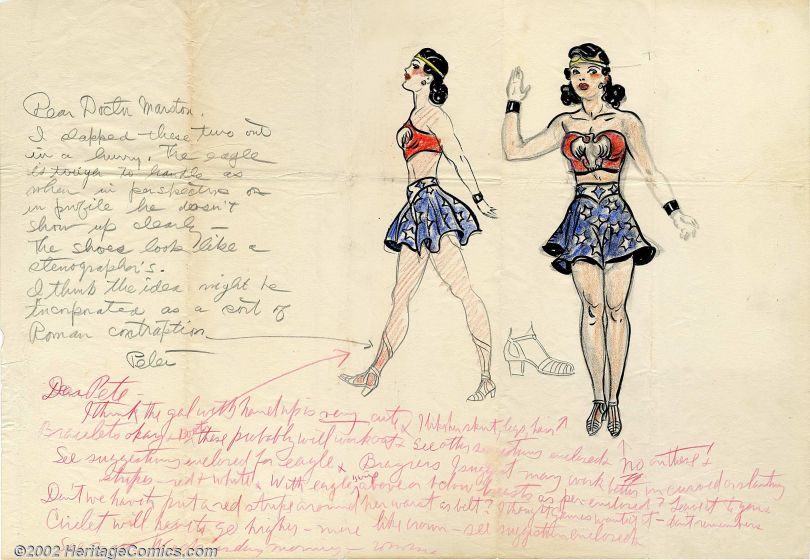 Dear Doctor Marston,
I slapped these two out
in a hurry. The eagle
is tough to handle as
when in perspective or
in profile he doesn't
show up clearly—
The shoes look like a
stenographer's.
I think the idea might be
incorporated as a sort of
Roman contraption.
Peter
Dear Pete—
I think the gal with hand up is very cute. I like her skirt, legs, hair.
Bracelets okay + these probably will work out. See other suggestions enclosed. No on these!
See suggestions enclosed for eagle + I suggest may work better in curved or slanting
stripes—red + white. With eagle's wings above or below breasts as per enclosed? Leave it to you.
Don't we have to put a red stripe around her waist as belt? I thought Gaines wanted it—don't remember.
Circlet will have to go higher—more like crown—see suggestions enclosed.
See Wednesday morning—
©2002 HeritageComics.com